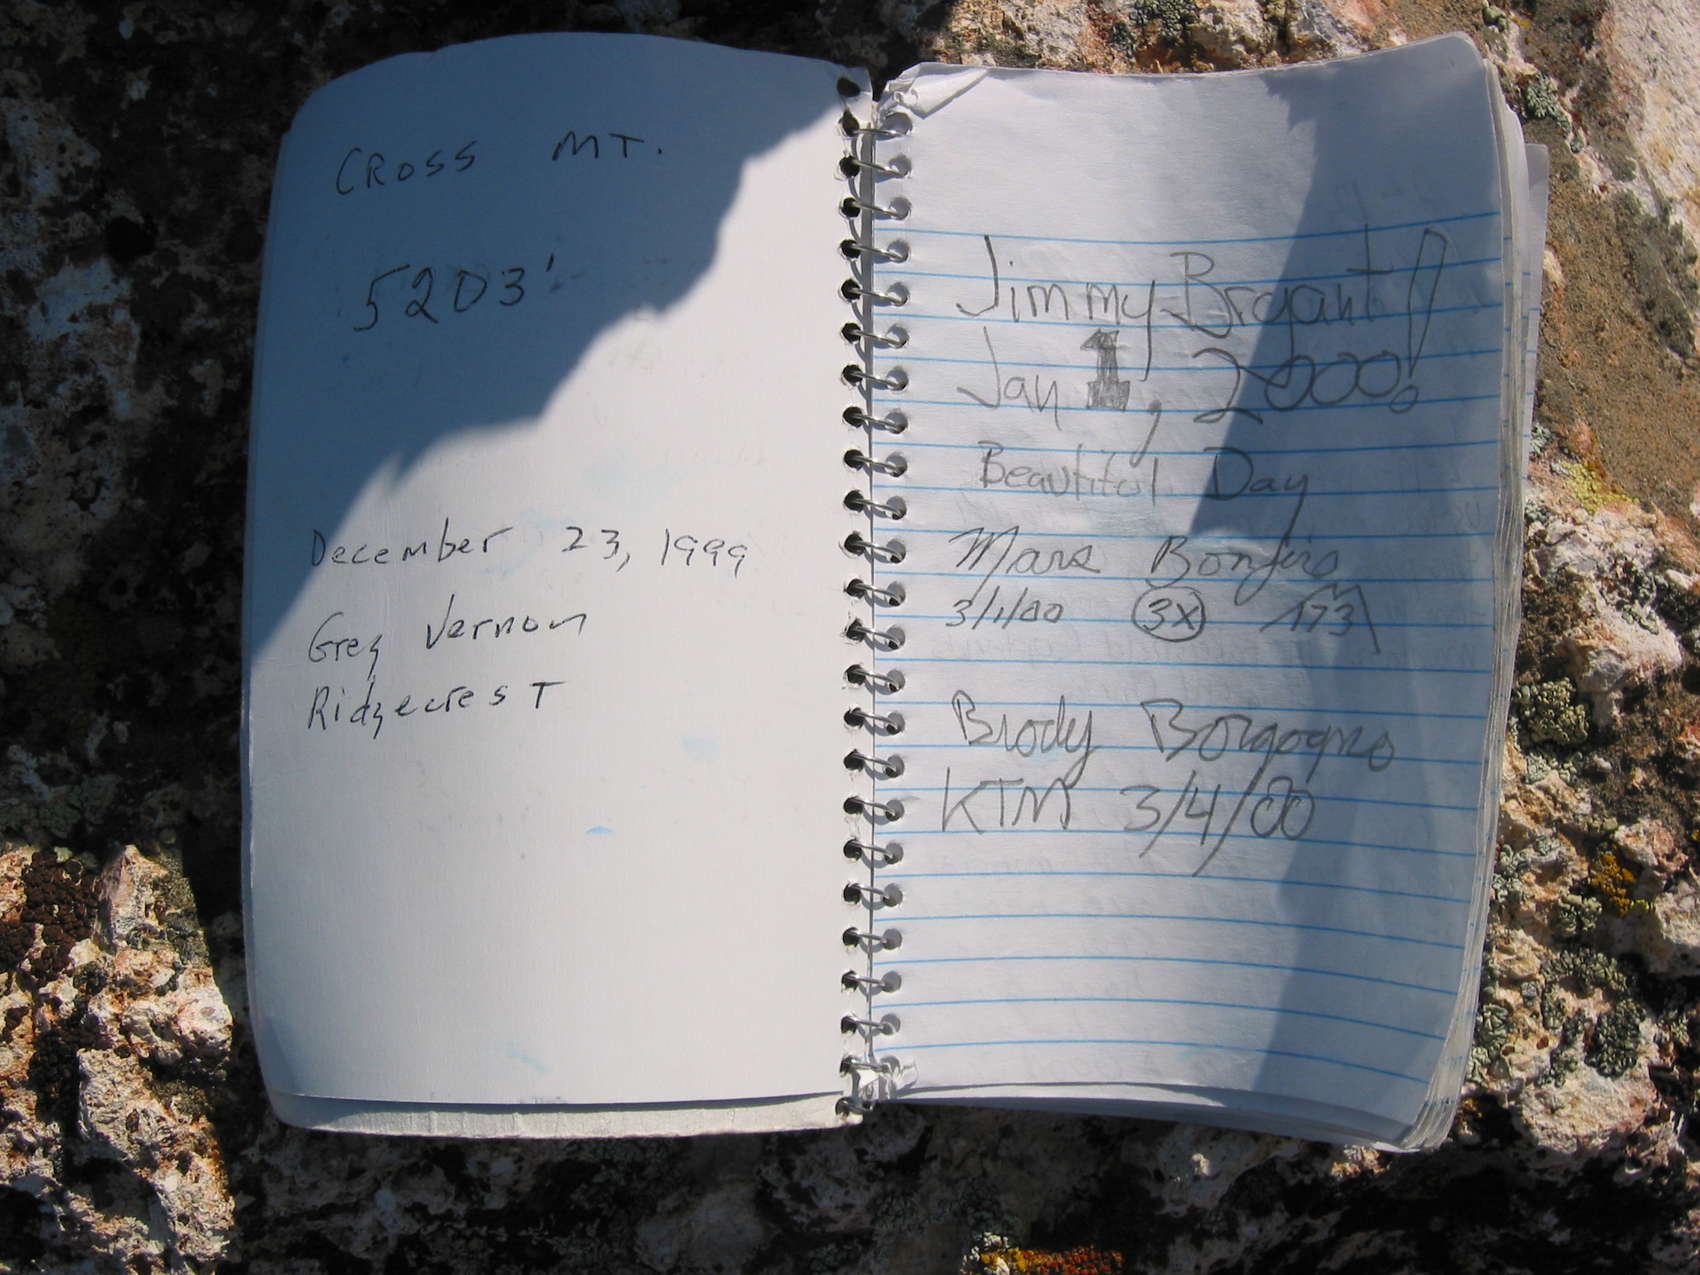 CROSS MT.
5203'
December 23, 1999
Greg Vernon
Ridgecrest
Jimmy Bryant!
Jan 1, 2000!
Beautiful Day
Mars Bonfire
3/1/00 3X 173
Brody Borgogno
KTM 3/4/00